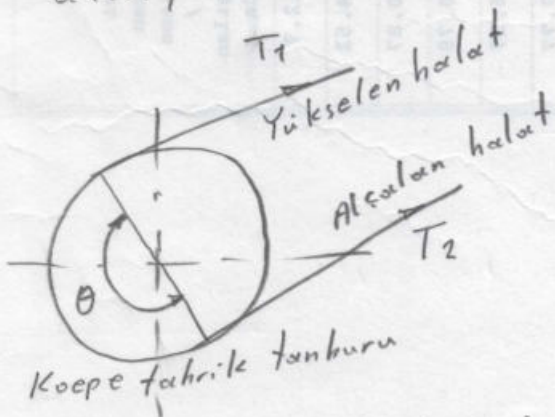 T₁
Yükselen halat
Alçalan halat
T₂
r
θ
Koepe tahrik tanburu